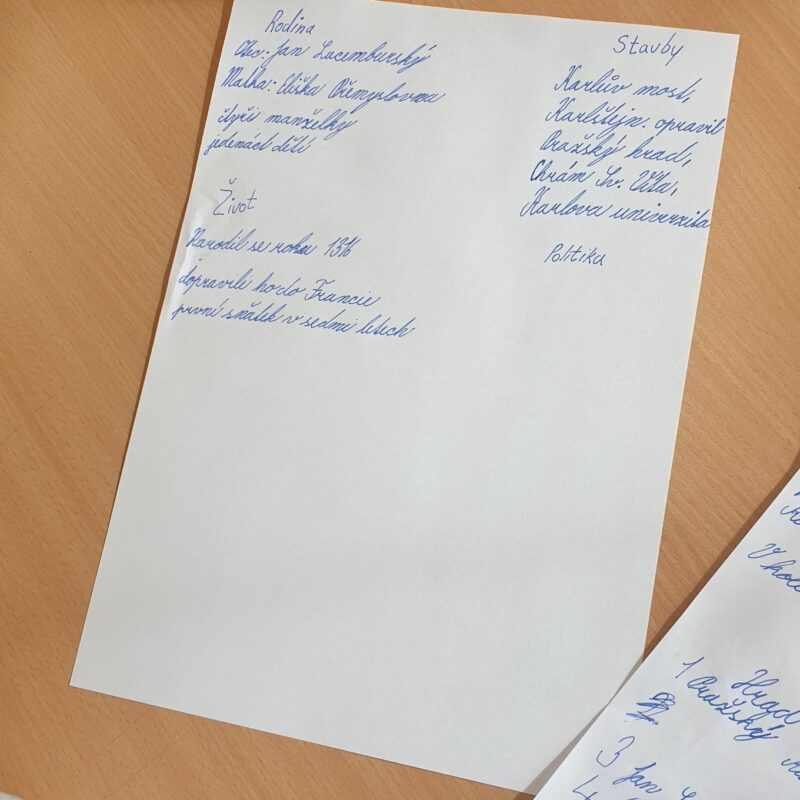 Rodina
Otec: Jan Lucemburský
Matka: Eliška Přemyslovna
čtyři manželky
jedenáct dětí
Život
Narodil se roku 1316
dopravili ho do Francie
první sňatek v sedmi letech
Stavby
Karlův most,
Karlštejn. opravil
Pražský hrad,
Chrám Sv. Víta,
Karlova univerzita
Politika
V
1 Hrad
Pražský
3 Jan
4